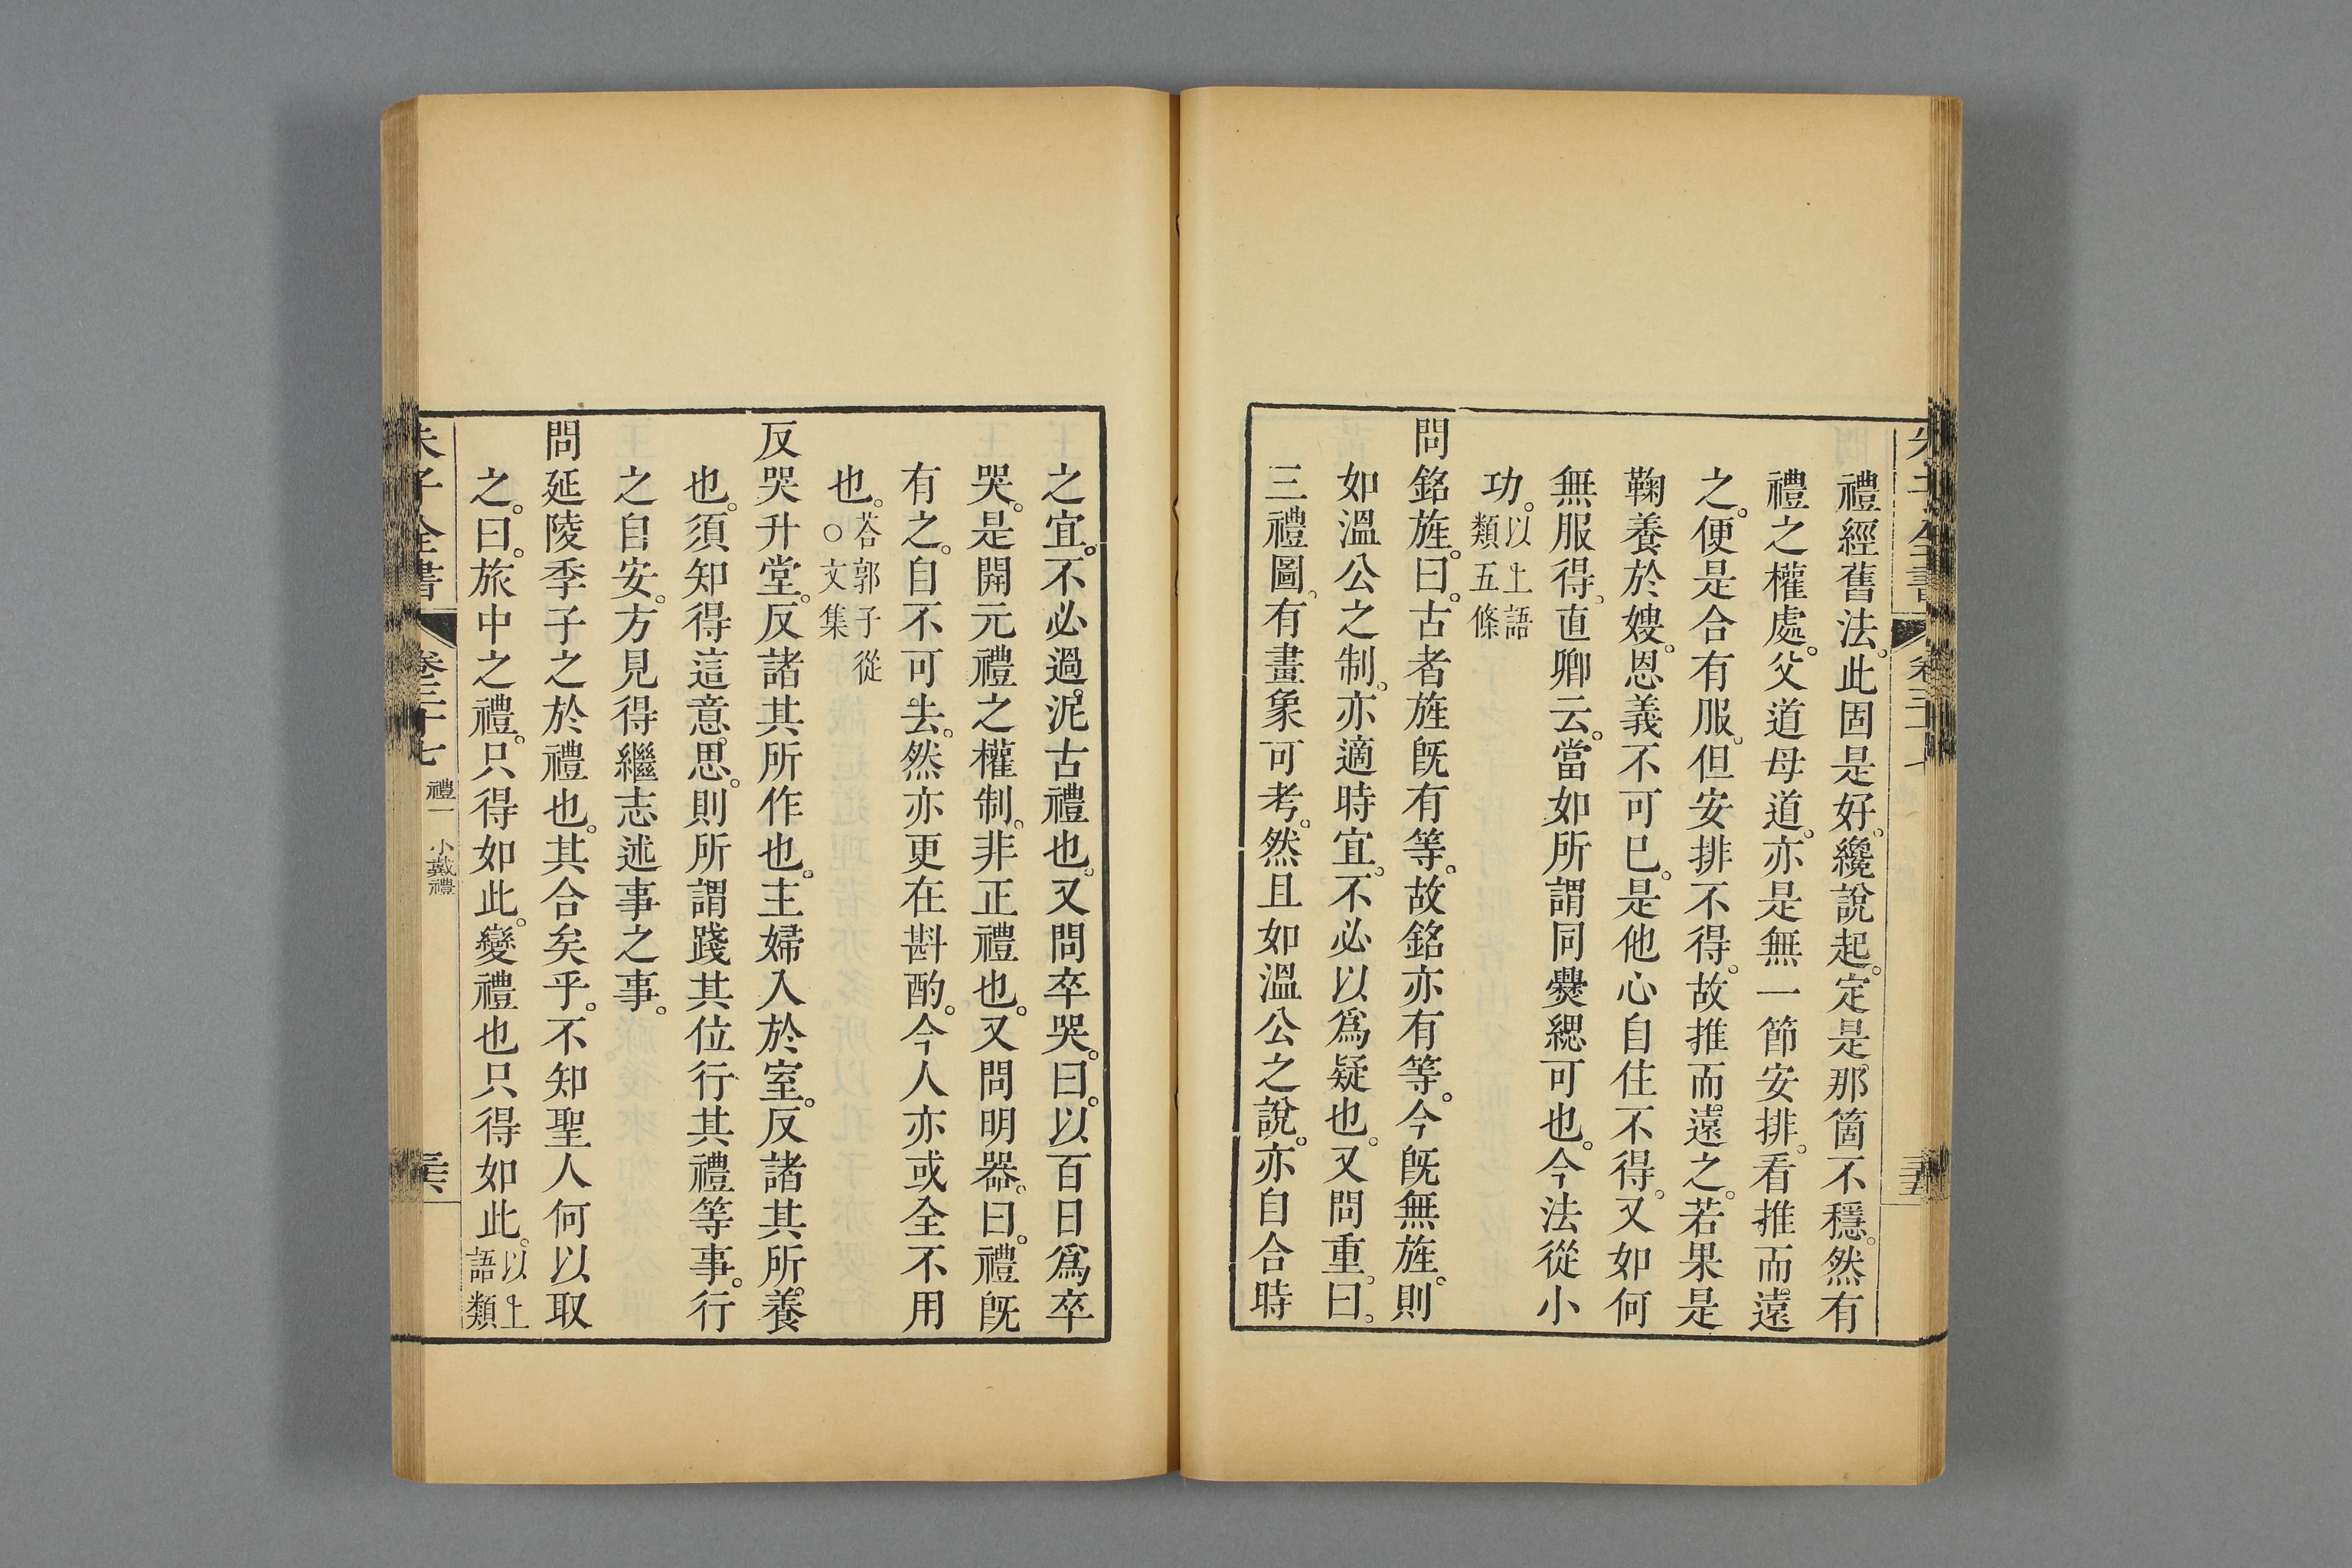 朱子全書 卷三十七 三五
禮經舊法。此固是好。纔說起。定是那箇不穩。然有
禮之權處。父道母道。亦是無一節安排。看推而遠
之。便是合有服。但安排不得。故推而遠之。若果是
鞠養於嫂。恩義不可已。是他心自住不得。又如何
無服得。直卿云。當如所謂同爨緦可也。今法從小
功。以上語類五條
問銘旌。曰。古者旌既有等。故銘亦有等。今既無旌。則
如溫公之制。亦適時宜。不必以爲疑也。又問重。曰。
三禮圖。有畫象可考。然且如溫公之說。亦自合時
之宜。不必過泥古禮也。又問卒哭。曰。以百日爲卒
哭。是開元禮之權制。非正禮也。又問明器。曰。禮既
有之。自不可去。然亦更在斟酌。今人亦或全不用
也。荅郭子從○文集
反哭升堂。反諸其所作也。主婦入於室。反諸其所養
也。須知得這意思。則所謂踐其位行其禮等事。行
之自安。方見得繼志述事之事。
問延陵季子之於禮也。其合矣乎。不知聖人何以取
之。曰。旅中之禮。只得如此。變禮也只得如此。以上語類
朱子全書 卷三十七 禮一 小戴禮 三六